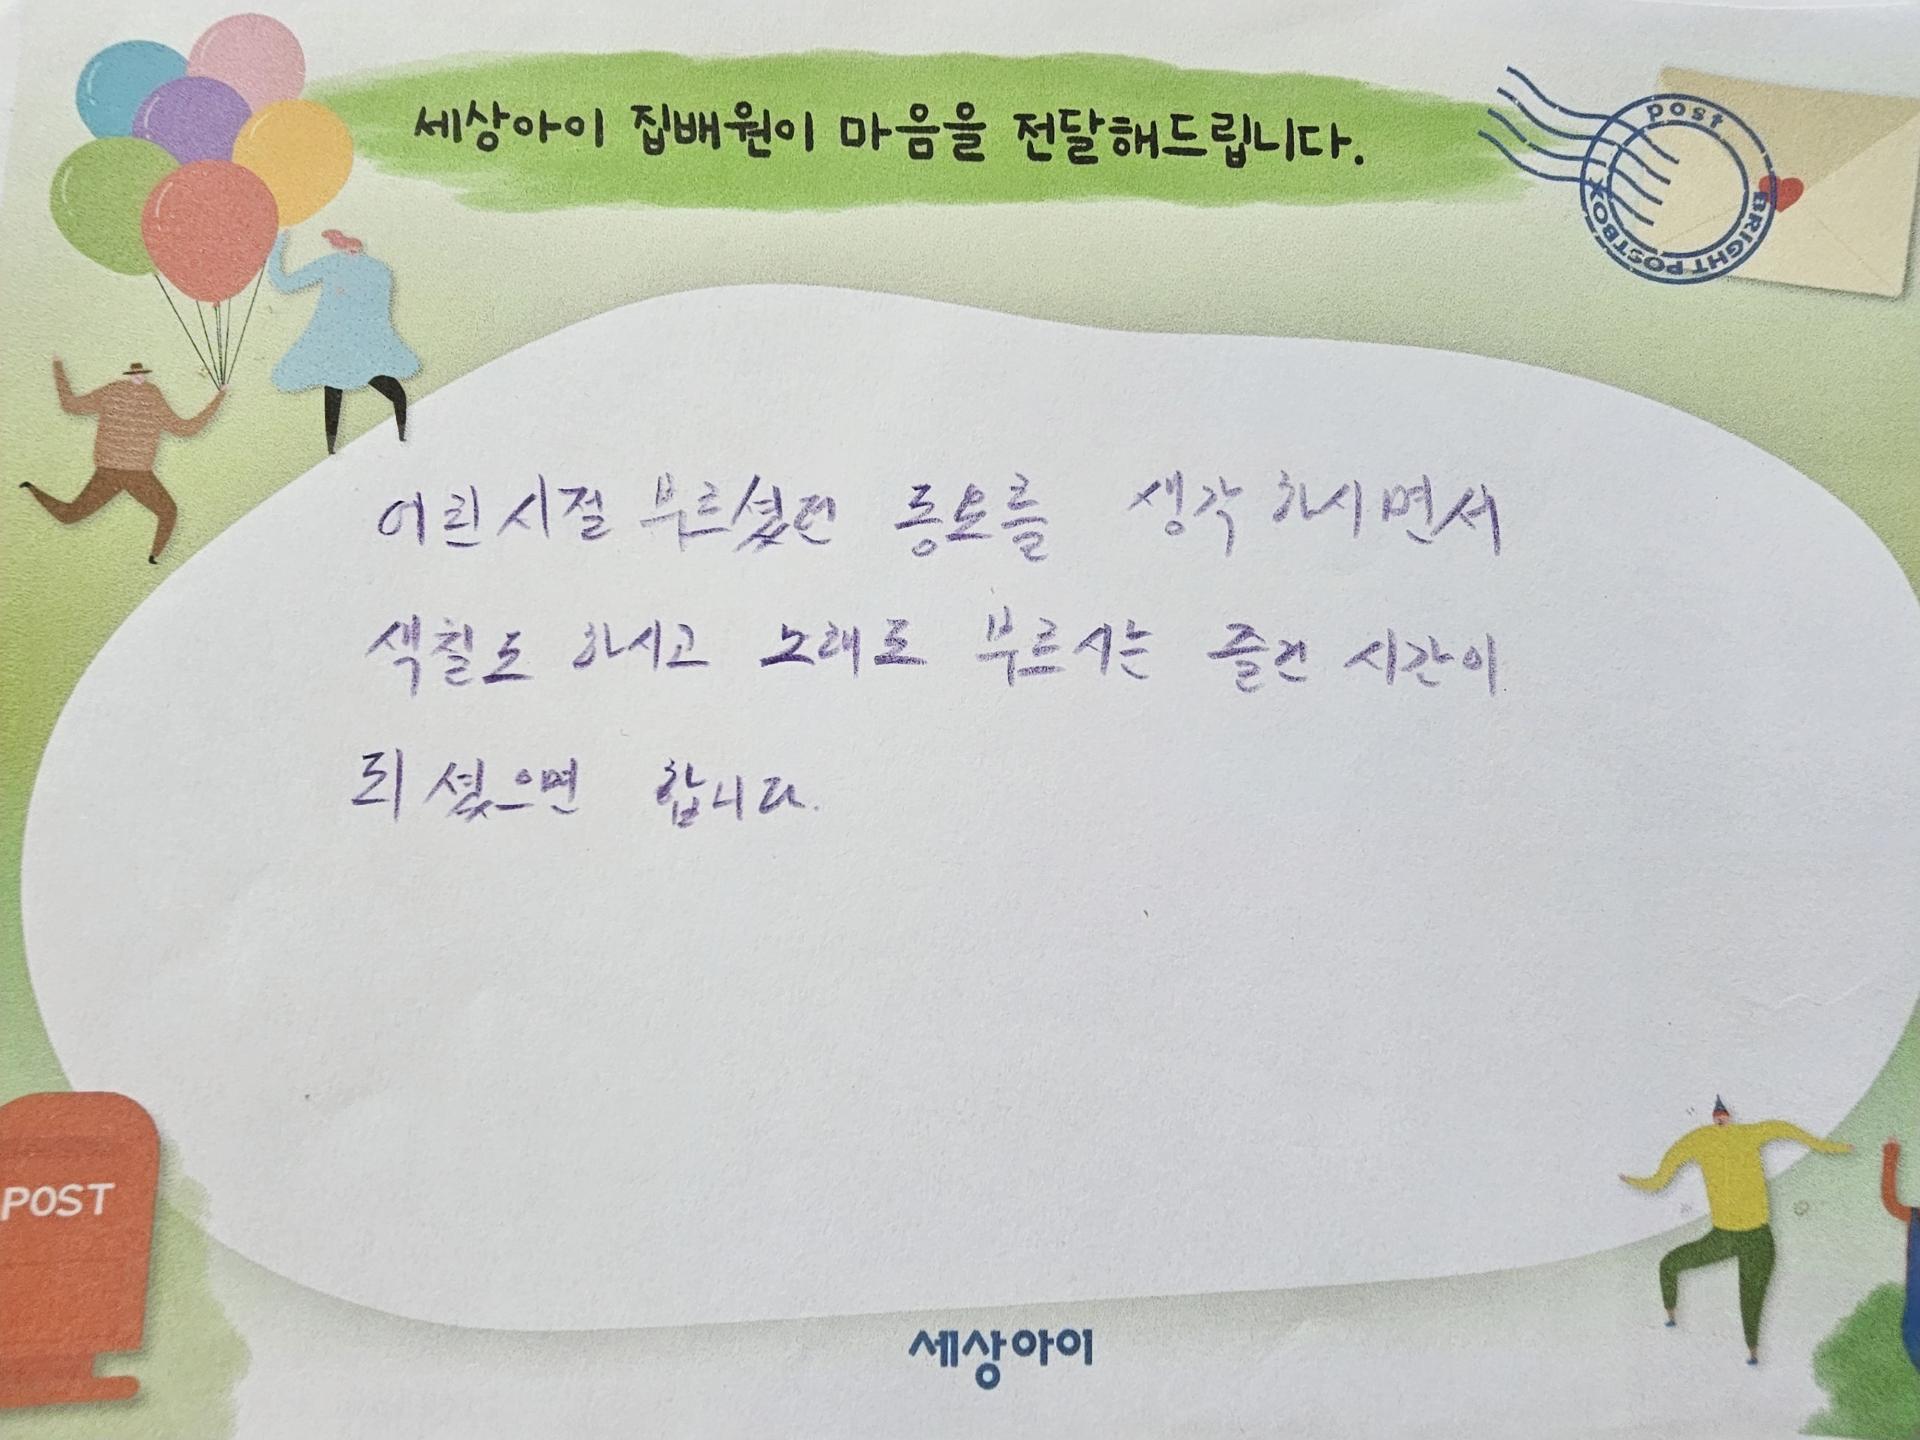 세상아이 집배원이 마음을 전달해드립니다.
post
BRIGHT POSTBOX
어린시절 부르셨던 동요를 생각하시면서
색칠도 하시고 노래도 부르시는 즐건 시간이
되셨으면 합니다.
POST
세상아이